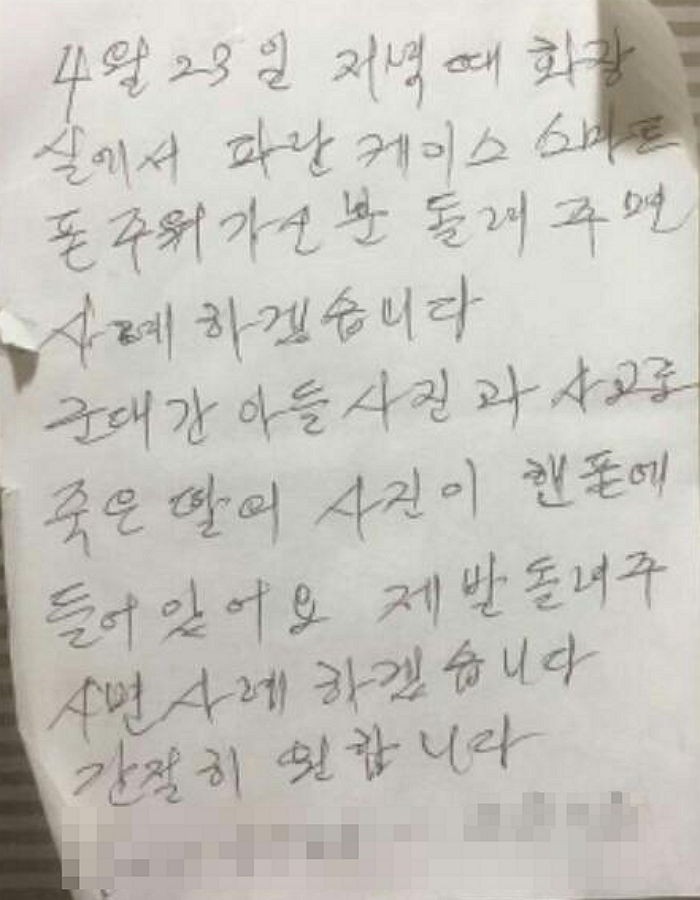 4월 23일 저녁 때 화장
실에서 파란 케이스 스마트
폰 주워 가신 분 돌려 주면
사례 하겠습니다
군대간 아들 사진과 사고로
죽은 딸의 사진이 핸폰에
들어 있어요 제발 돌려주
시면 사례 하겠습니다
간절히 원합니다